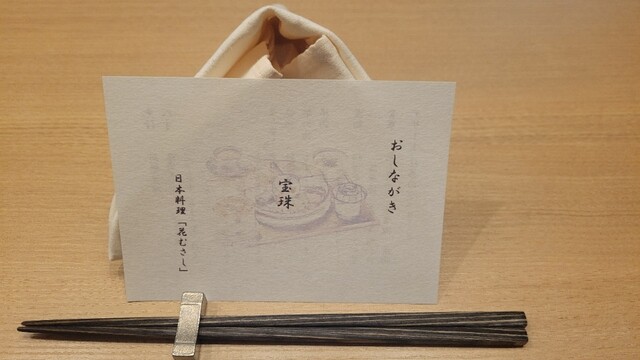 おしながき
宝珠
日本料理「花むさし」